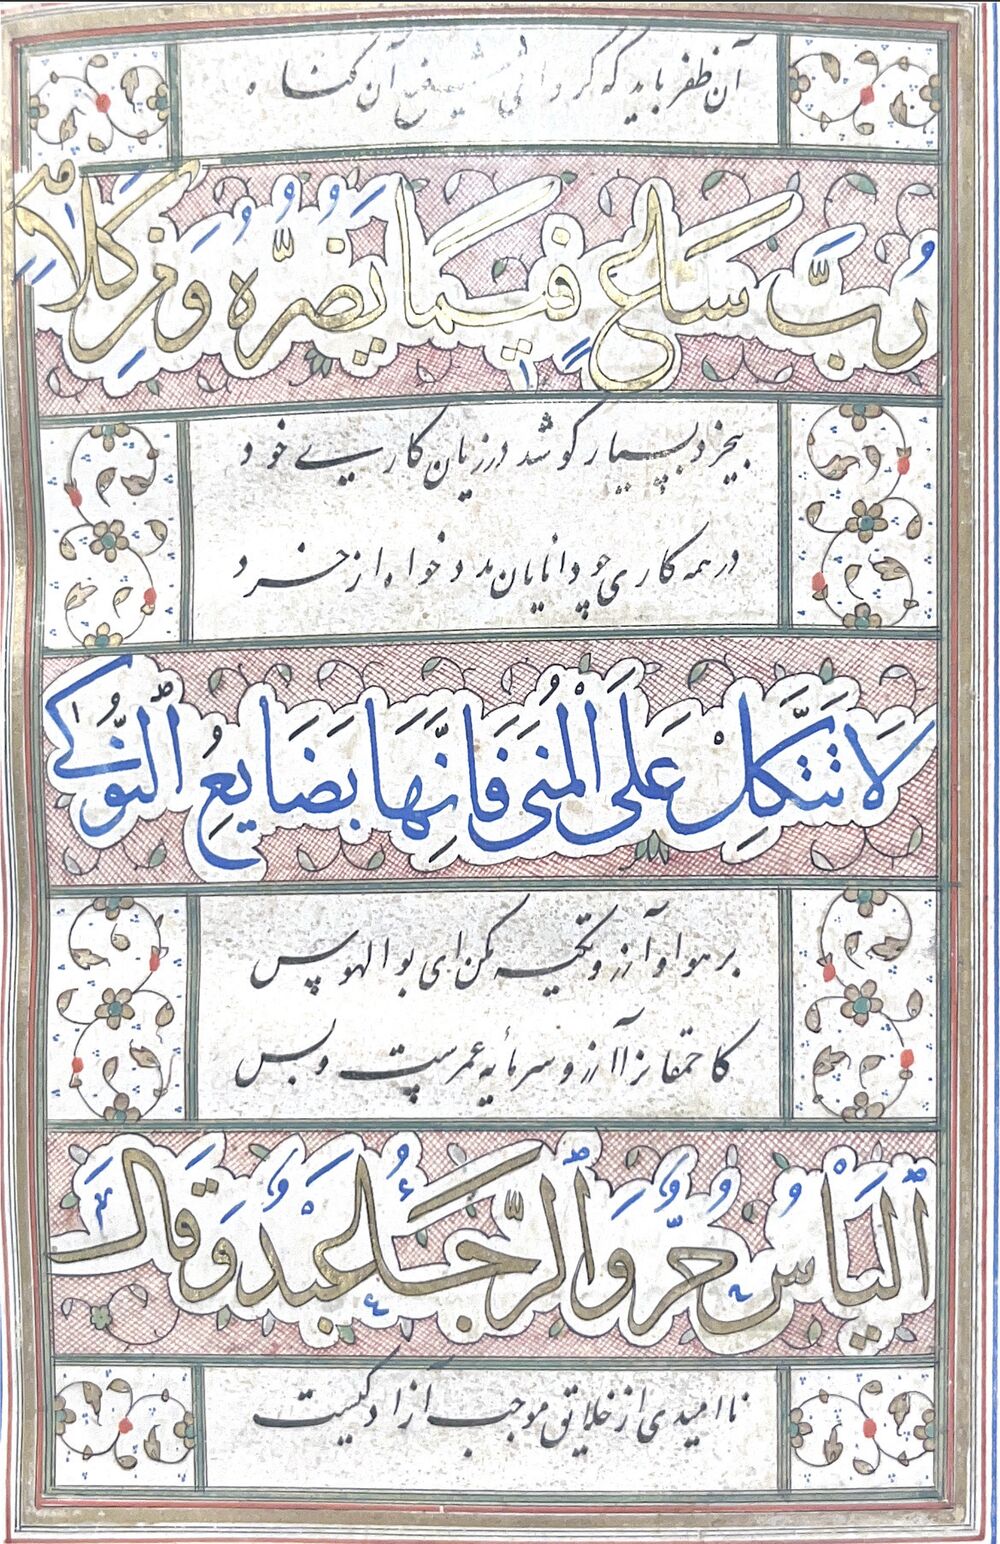 آن ظفر باید که گردانی شفیع آن گناه
رُبَّ سَاعٍ فِیمَا یَضُرُّهُ وَمِنْ کَلَامٍ
بیخرد بسیار کوشد در زیان کاریے خود
در همه کاری چو دانایان مدد خواه از خرد
لَا تَتَّکِلْ عَلَی الْمُنَی فَاِنَّهَا بَضَایِعُ النُّوکَے
بر هوا و آرزو تکیه مکن ای بوالهوس
کاحمقانرا آرزو سرمایه عمرست و بس
اَلْیَاْسُ حُرٌّ وَالرَّجَاءُ عَبْدٌ وَقَالَ
ناامیدی از خلایق موجب آزادکیست